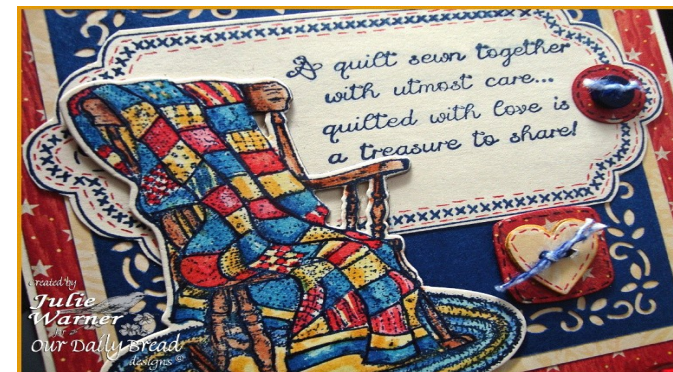 A quilt sewn together
with utmost care...
quilted with love is
a treasure to share!
Created by
Julie
Warner
for
Our Daily Bread
designs ©